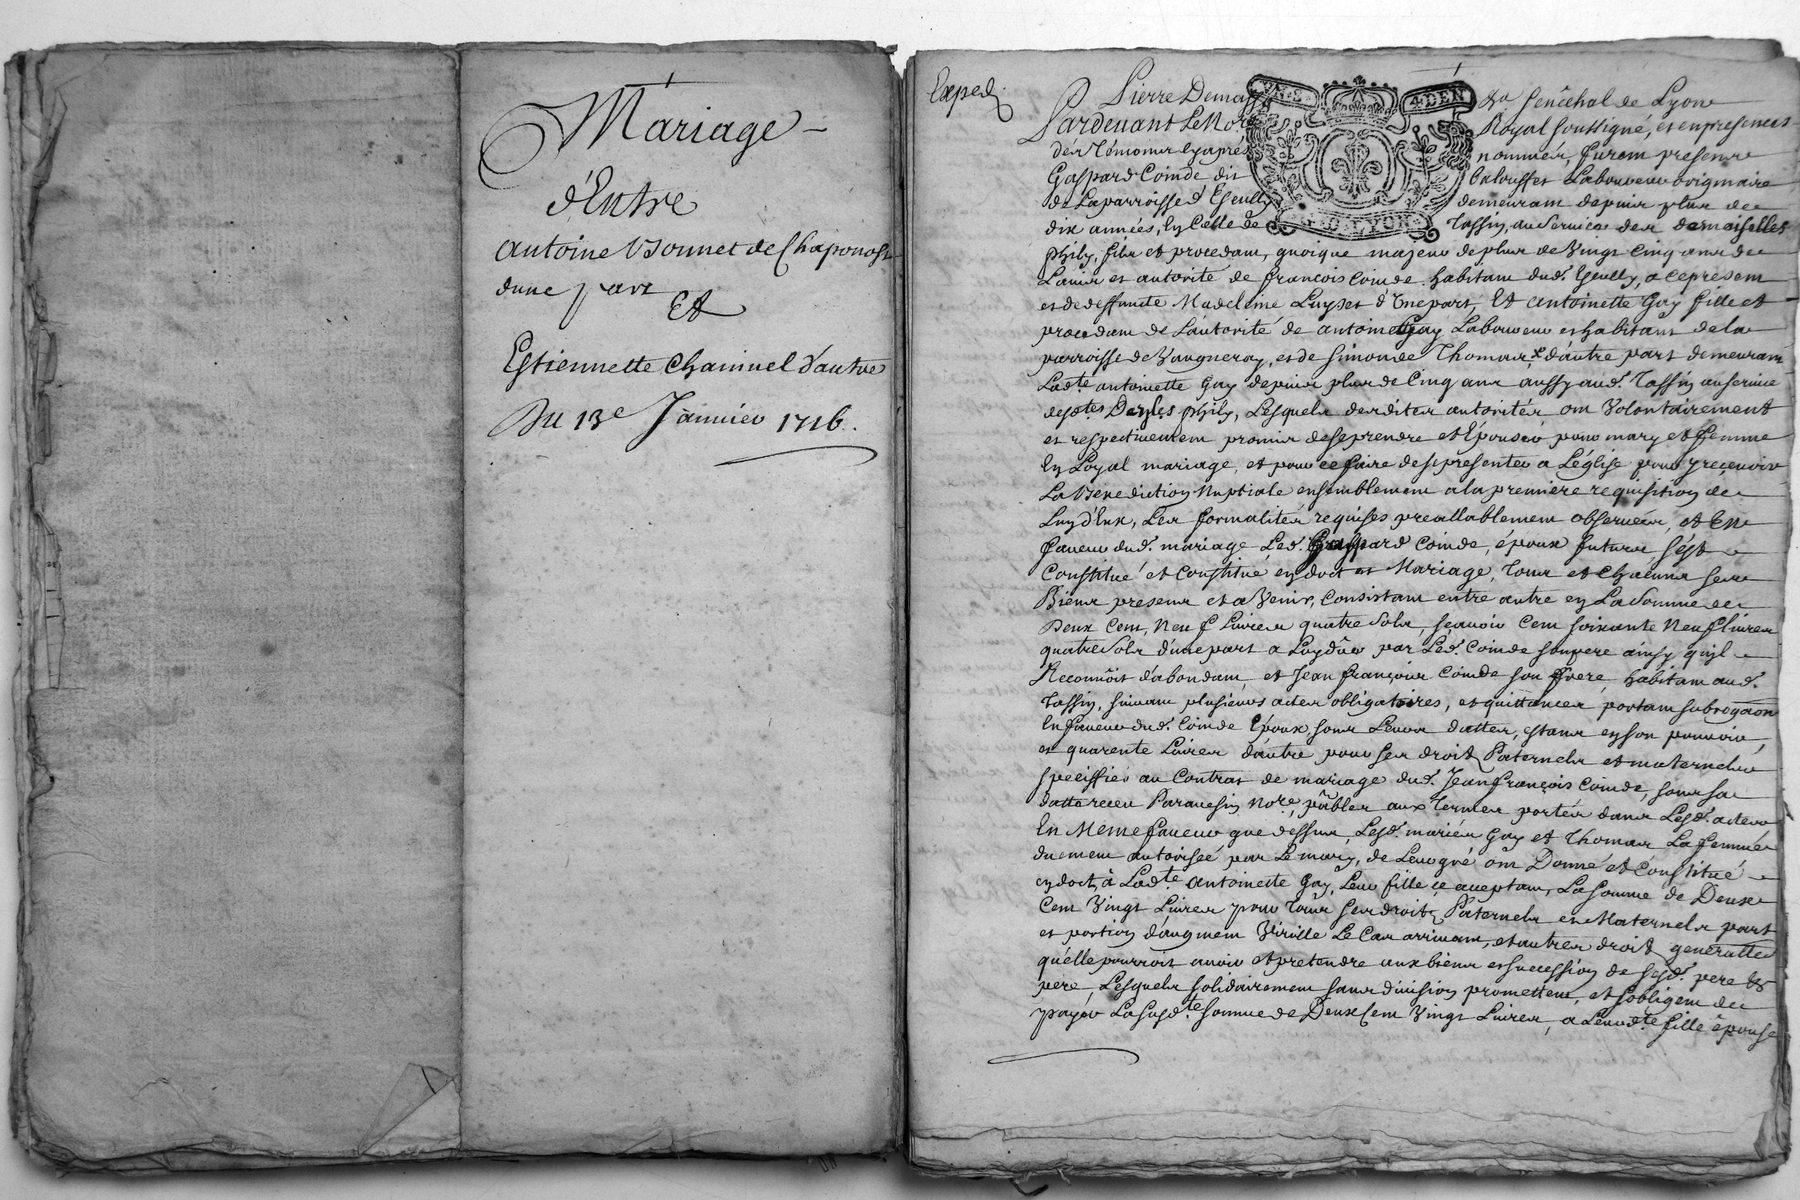 Mariage
d'Entre
Antoine Bonnet de Chaponost
dune part
Et
Estiennette Chainuel d'autre
Du 13e Janvier 1716.
Exped.
Pierre Demas
Sénéchal de Lyon
Pardevant Le No
Royal soussigné, et en presences
des Témoins cy aprés
nommés, furent presens
Gaspard Coinde dit
Laboureur originaire
de La parroisse d'Escully
demeurant depuis plus de
dix années, en Celle de
Tassin, au Service des demoiselles
phily, fils et procedant, quoique majeur de plus de Vingt Cinq ans de
L'avis et autorité de françois Coinde habitant dud. Escully, a ce présent
et de deffuncte Madeleine Luyset d'Une part, Et antoinette Gay fille et
procedant de L'autorité de antoine Gay Laboureur et habitant de la
parroisse de Vaugneray, et de Simonde Thomas d'autre part demeurant
Ladte antoinette Gay depuis plus de Cinq ans aussy aud. Tassin au service
desdtes Denlles phily, Lesquels desdites autorités ont Volontairement
et respectivement promis de se prendre et Epouser pour mary et femme
En Loyal mariage, et pour ce faire de se presenter a L'église pour y recevoir
La Benediction Nuptiale ensemblement a la premiere requisition de
Lun d'Eux, Les formalités requises preallablement observées, et En
faveur dud. mariage Led. Gaspard Coinde, époux futur s'est
Constitué et Constitue en dot et Mariage, Tous et Chacuns ses
Biens presens et a Venir, Consistant entre autre en La Somme de
Deux Cent, Neuf Livres quatre Sols, sçavoir Cent soixante Neuf livres
quatre Sols d'une part a Luy dües par Led. Coinde son pere ainsy qu'il
Reconnoit d'abondant, et Jean françois Coinde son frere, habitant aud.
Tassin, suivant plusieurs actes obligatoires, et quittances portant subrogaon
En faveur dud. Coinde Epoux sous Leurs dattes, estans en son pouvoir,
et quarente Livres d'autre pour ses droits Paternels et maternels
speciffiés au Contrat de mariage dud. Jean françois Coinde, sous sa
datte receu Paravesin Nore, payables aux Termes portés dans Lesd. actes
En Meme faveur que dessus, Lesd. mariés Gay et Thomas La femme
duement autorisée par Le mary, de Leur gré ont Donné et Constitué
en dot, à Ladte antoinette Gay, Leur fille ce acceptant, La somme de Deux
Cent Vingt Livres pour Tous ses droits Paternels et Maternels part
et portion d'augment Virille Le Cas arrivant, et autres droits generallement
qu'elle pourroit avoir et pretendre aux biens et succession de sesd. pere &
mere, Lesquels solidairement sans division promettent, et s'obligent de
payer La susdte somme de Deux Cent Vingt Livres, a Leurdte fille épouse